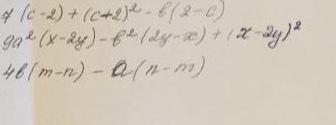 7 (c-2) + (c+2)² - b(2-c)
9a² (x-2y) - b² (2y-x) + (x-2y)²
4b(m-n) - a(n-m)